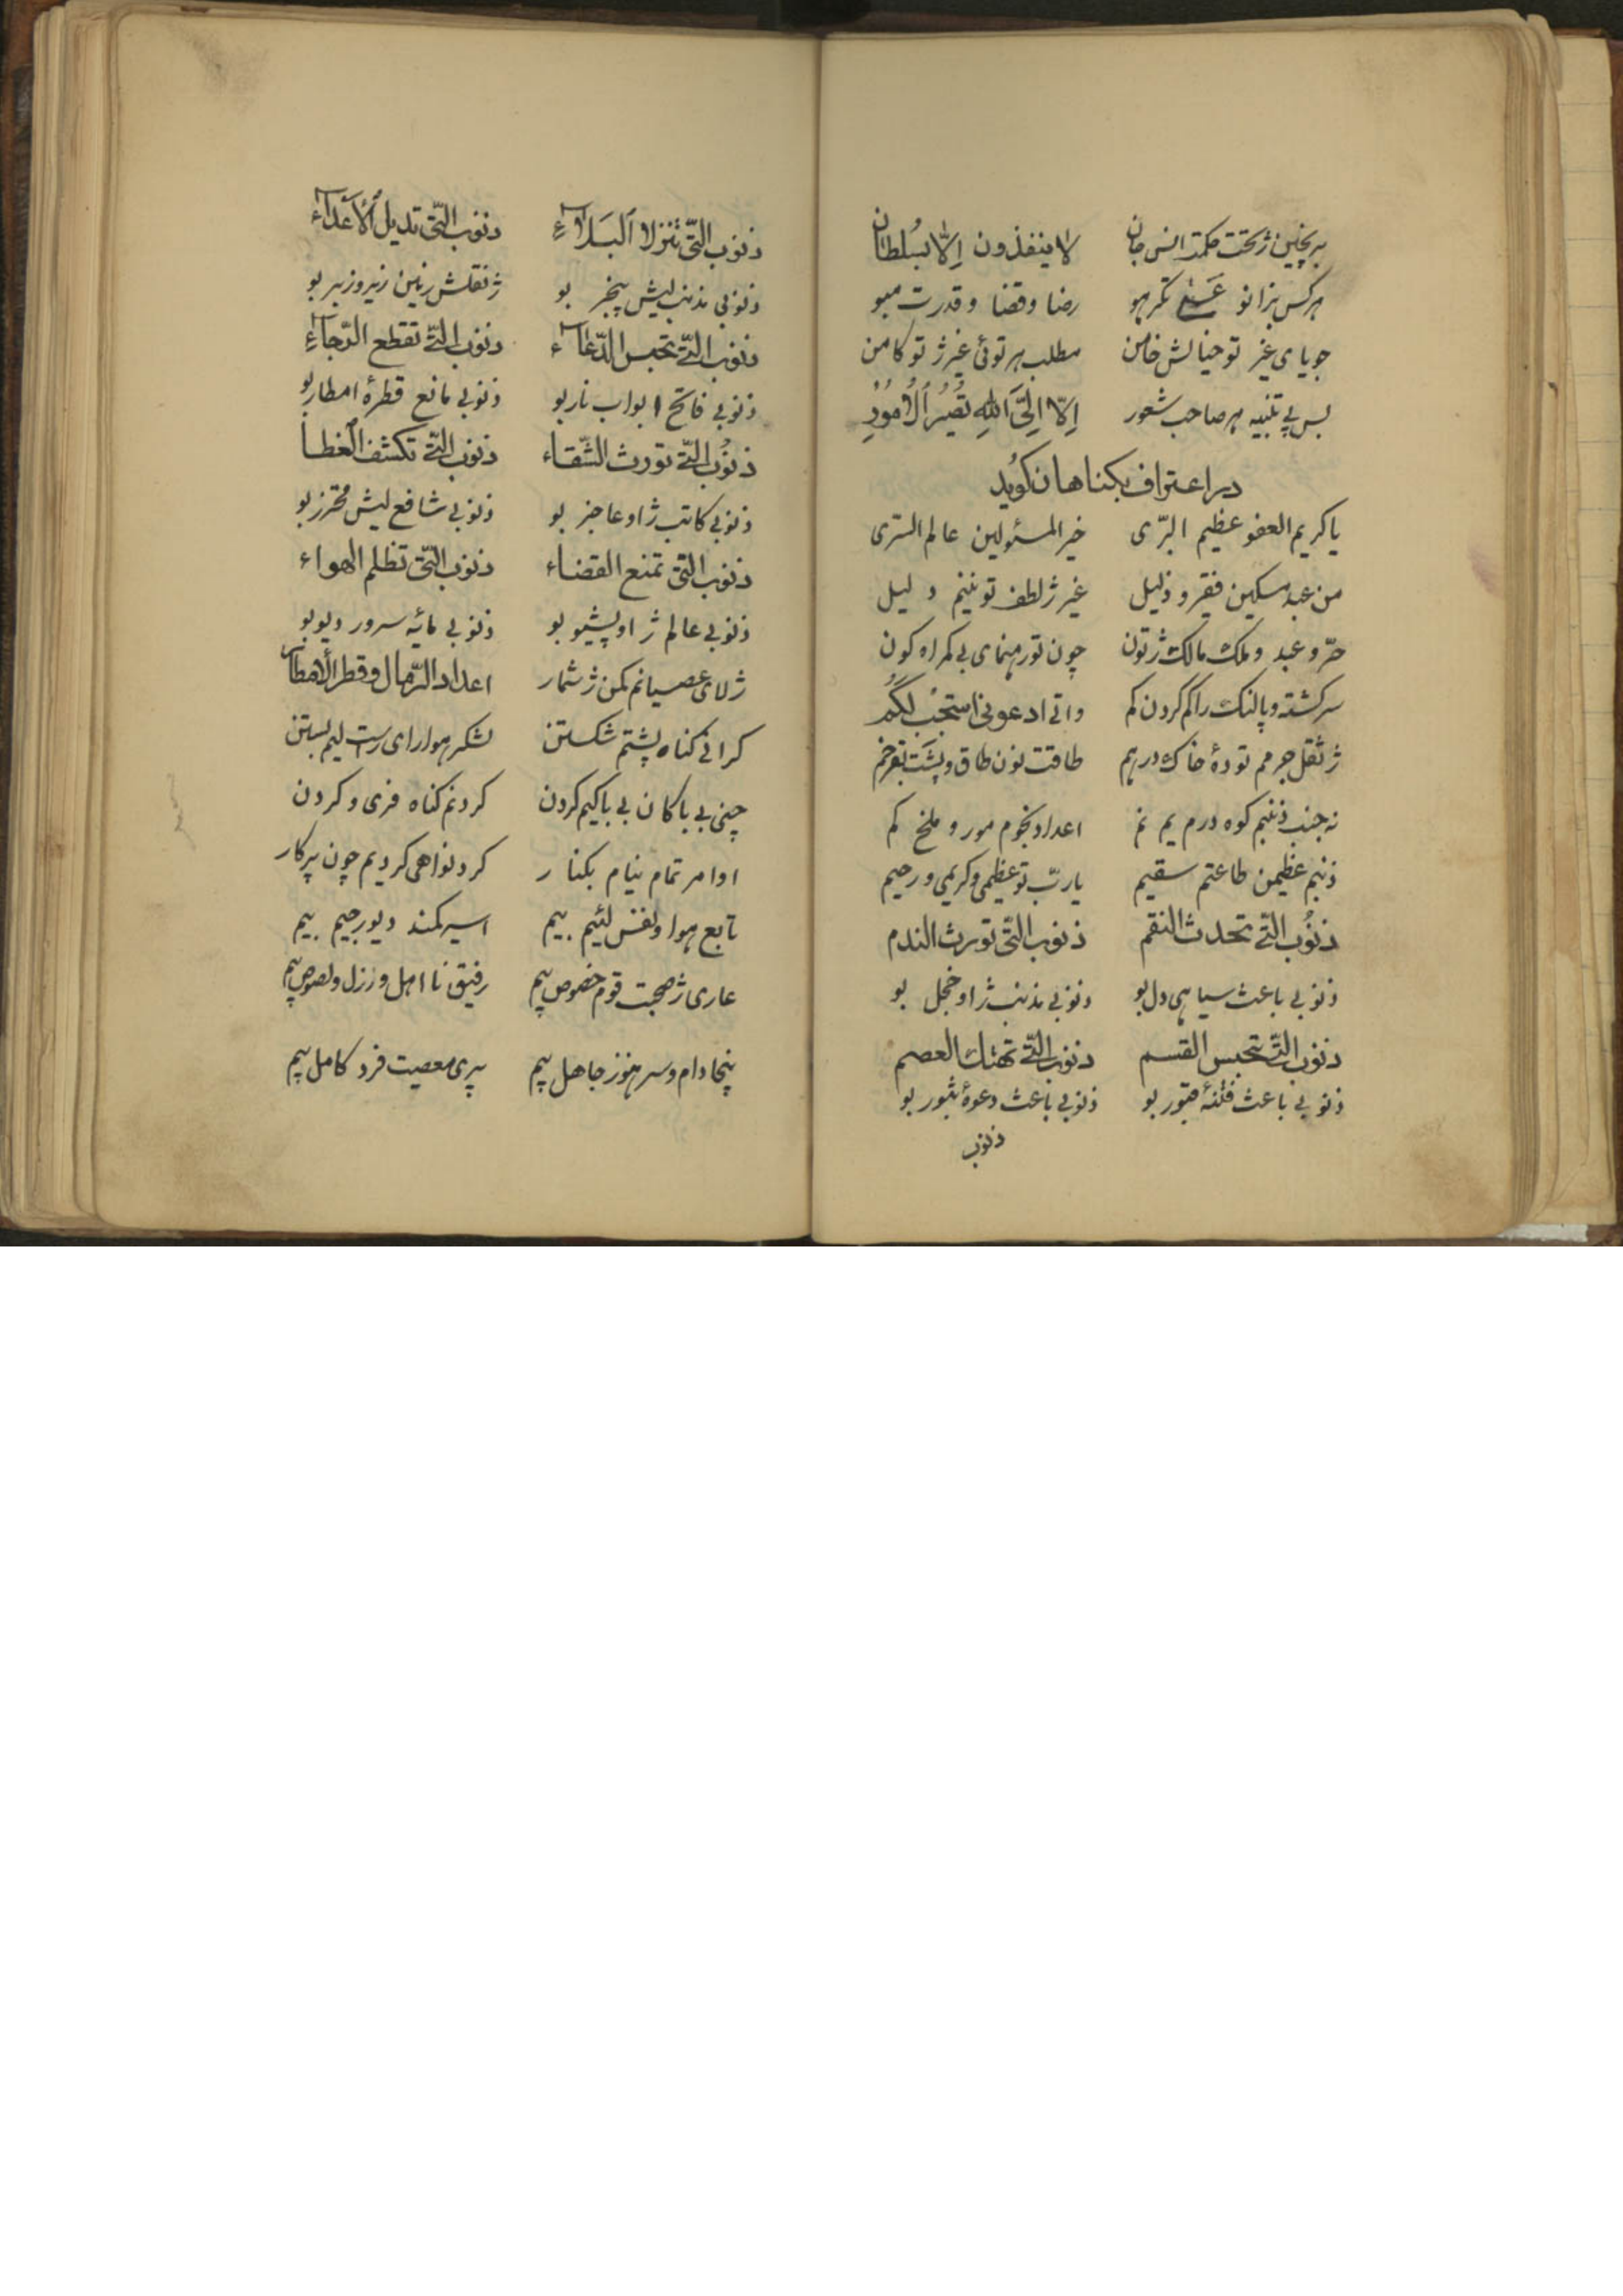 بر چنین ژ تخت حکمت انس جان لا ینفذون إلّا بسُلطان
هر کس بزانو رضا و قضا و قدرت مبو
جویای غیر تو خیالش خامن مطلب هر توئی غیر ژ تو کامن
بس پی تنبیه هر صاحب شعور إلّا إلَی اللهِ تَصِیرُ الْأمُورُ
در اعتراف بکناهان کوید
یا کریم العفو عظیم البرّی خیر المسئولین عالم السرّی
من عبد مسکین فقیر و ذلیل غیر ژ لطف تو نینم دلیل
حرّ و عبد و ملک مالک ژ تون چون تو رهنمای بی کمراه کون
سر کشته و پالنک راکم کردن کم واتی ادعونی استجب لکم
ژ ثقل جرمم تودهٔ خاک درهم طاقت نون طاق و پشت
نه جنب ذنبم کوه درم یم نم اعداد نجوم مور و ملخ کم
ذنبم عظیمن طاعتم سقیم یا ربّ تو عظیمی و کریمی و رحیم
ذنُوب التّی تحدث النقم ذنوب التّی تورث الندم
ذنوبی باعث سیاهی دل بو ذنوبی مذنب ژ او خجل بو
ذنوب التّی تحبس القسم ذنوب التّی تهتک العصم
ذنوبی باعث فتنهٔ قبور بو ذنوبی باعث دعوهٔ ثبور بو
ذنوب
ذنوب التّی تنزل البَلاءِ ذنوب التّی تدیل الأعداء
ذنوبی مذنب لیش بیخبر بو ژ ثقلش زمین زیر و زبر بو
ذنوب التّی تحبس الدّعاء ذنوب التّی تقطع الرّجاءِ
ذنوبی فاتح ابواب نار بو ذنوبی مانع قطرهٔ امطار بو
ذنُوب التّی تورث الشّقاء ذنوب التّی تکشف الغطا
ذنوبی کاتب ژ او عاجز بو ذنوبی شافع لیش محترز بو
ذنوب التّی تمنع القضاء ذنوب التّی تظلم الهواء
ذنوبی عالم ژ او پشیو بو ذنوبی مائه سرور دیو بو
ژ لای عصیانم کمن ژ شمار اعداد الرّمال و قطر الأمطار
کرانی کناه پشتم شکستن لشکر هوا رای راست لیم بستن
چنی بی باکان بی باکیم کردن کردنم کناه فری و کردن
اوامر تمام نیام بکنار کرد نواهی کردیم چون پرکار
تابع هوا و نفس لئیم بیم اسیر کمند دیو رجیم بیم
عاری ژ صحبت قوم خصوص بیم رفیق نا اهل و رزل و لصوص بیم
پنجا دام و سر هنوز جاهل بیم پری معصیت فرد کامل بیم